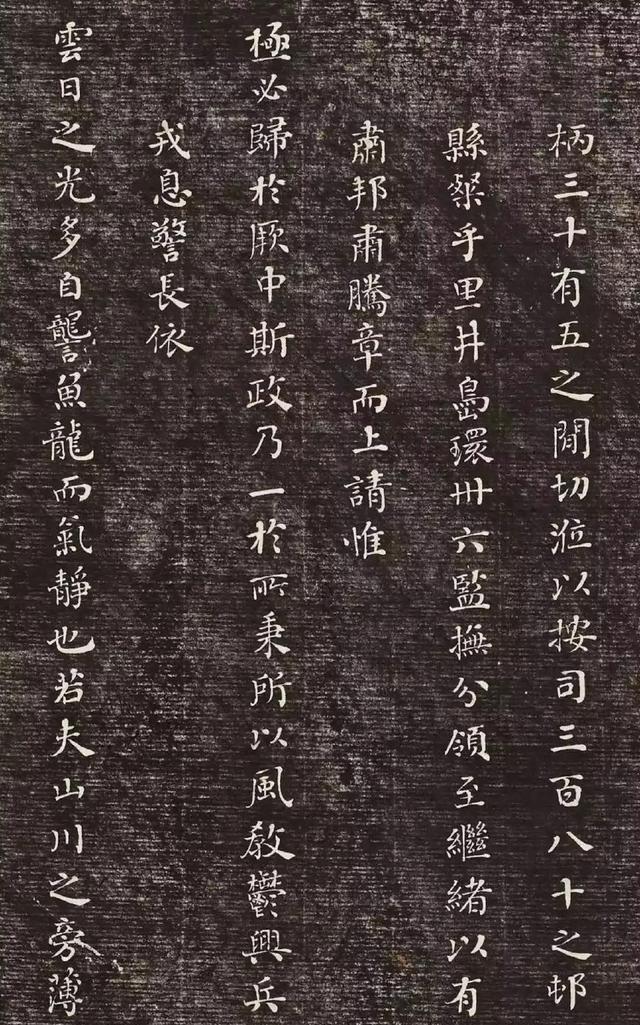 柄三十有五之間切涖以按司三百八十之邨
縣槩乎里井島環卅六監撫分領至繼緒以有
肅邦肅騰章而上請惟
極必歸於厥中斯政乃一於所秉所以風敎鬱興兵
戎息警長依
雲日之光多自讋魚龍而氣靜也若夫山川之旁薄